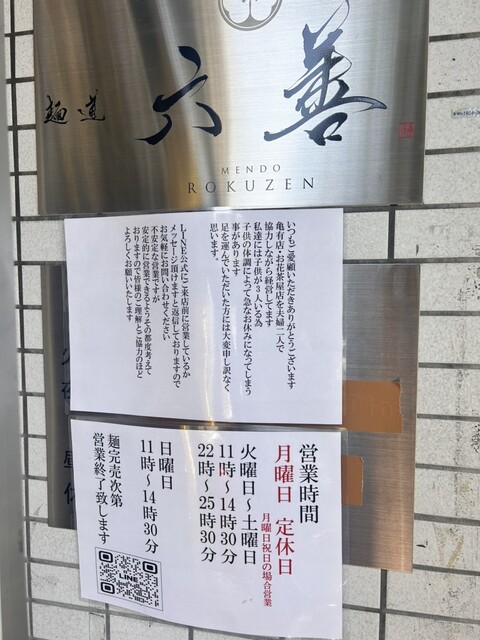 麺道 六善
MENDO
ROKUZEN
いつもご愛顧いただきありがとうございます
亀有店・お花茶屋店を夫婦二人で
協力しながら経営してます
私達には子供が3人いる為
子供の体調によって急なお休みになってしまう
事があります
足を運んでいただいた方には大変申し訳なく
思います。
LINE公式にご来店前に営業しているか
メッセージ頂けますと返信しておりますので
お気軽にお問い合わせください
不安定な営業ですが
安定的に営業できるようその都度考えて
おりますので皆様のご理解とご協力のほど
よろしくお願いいたします
営業時間
月曜日 定休日
月曜日祝日の場合営業
火曜日~土曜日
11時~14時30分
22時~25時30分
日曜日
11時~14時30分
麺完売次第
営業終了致します
LINE